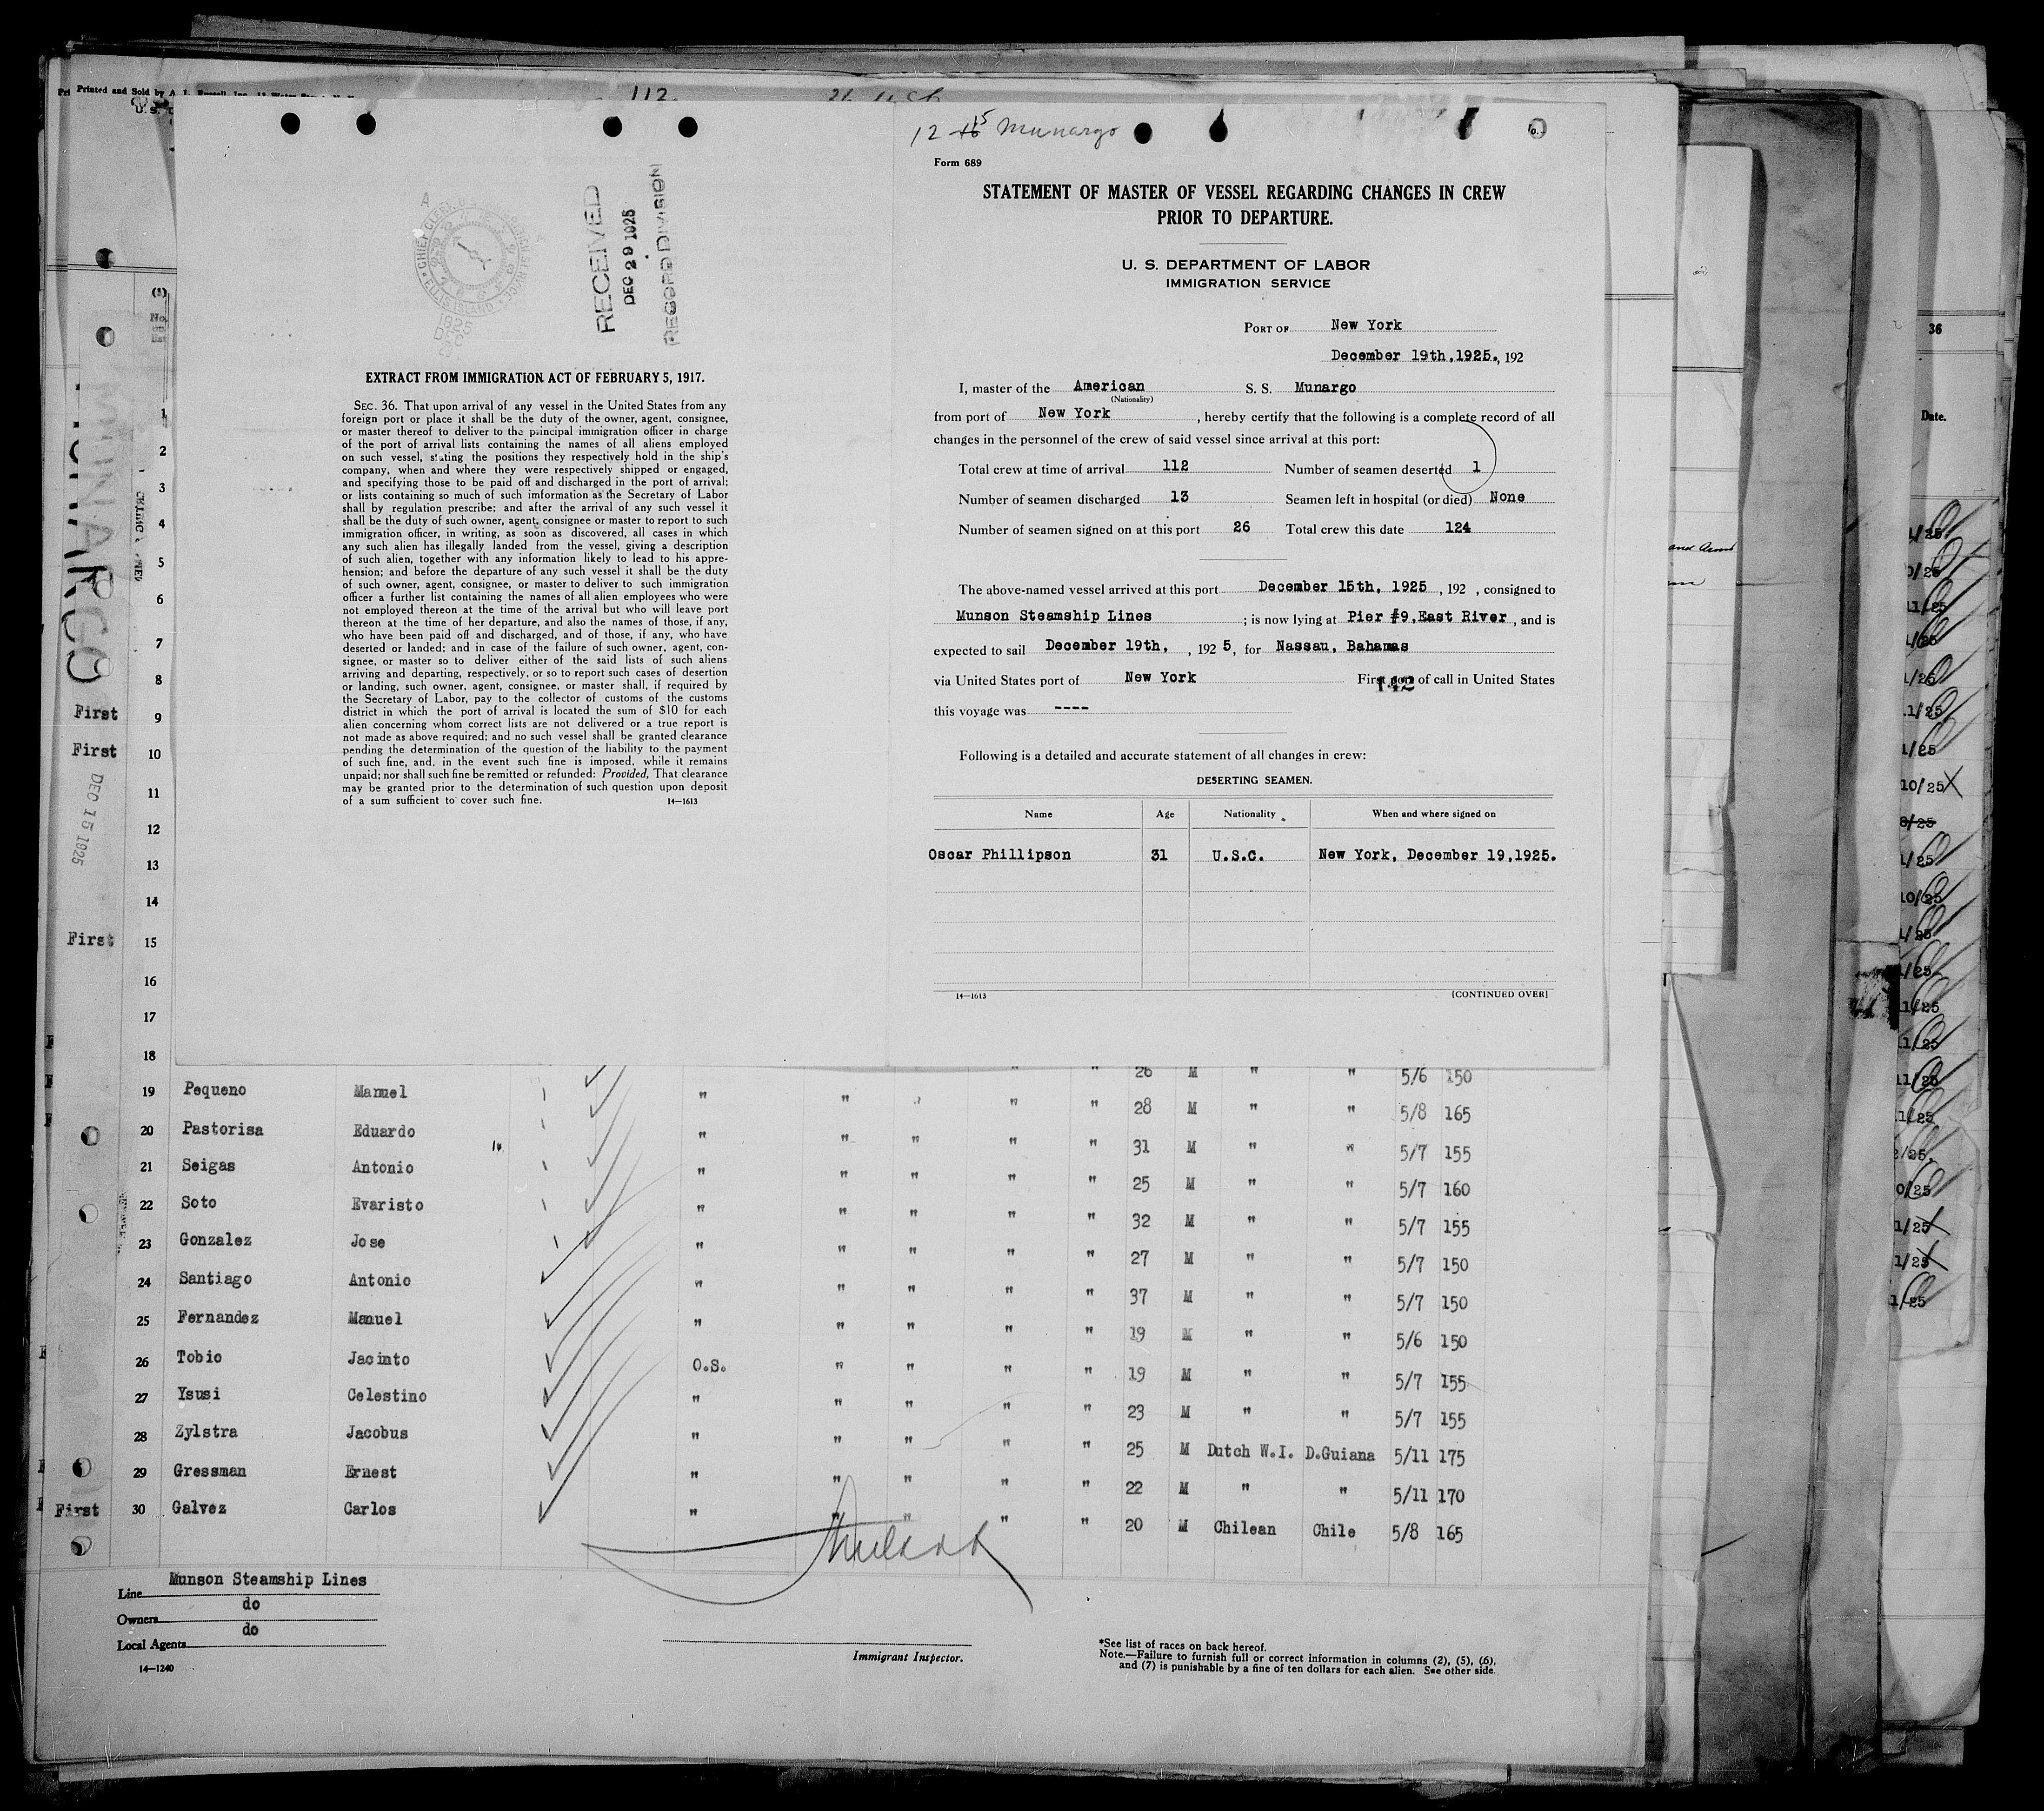 Printed and Sold by A. L.
112
12 16 15 Munargo
Form 689
STATEMENT OF MASTER OF VESSEL REGARDING CHANGES IN CREW
PRIOR TO DEPARTURE.
U. S. DEPARTMENT OF LABOR
IMMIGRATION SERVICE
PORT OF New York
December 19th,1925., 192
I, master of the American S. S. Munargo
(Nationality)
from port of New York , hereby certify that the following is a complete record of all
changes in the personnel of the crew of said vessel since arrival at this port:
Total crew at time of arrival 112 Number of seamen deserted 1
Number of seamen discharged 13 Seamen left in hospital (or died) None
Number of seamen signed on at this port 26 Total crew this date 124
The above-named vessel arrived at this port December 15th, 1925 , 192 , consigned to
Munson Steamship Lines ; is now lying at Pier #9,East River , and is
expected to sail December 19th, , 192 5, for Nassau, Bahamas
via United States port of New York First port of call in United States
142
this voyage was ----
Following is a detailed and accurate statement of all changes in crew:
DESERTING SEAMEN.
Name Age Nationality When and where signed on
Oscar Phillipson 31 U.S.C. New York, December 19,1925.
14—1613 [CONTINUED OVER]
CHIEF CLERK, U.S. IMMIGRATION SERVICE
ELLIS ISLAND
1925
RECEIVED
DEC 29 1925
RECORD DIVISION
EXTRACT FROM IMMIGRATION ACT OF FEBRUARY 5, 1917.
SEC. 36. That upon arrival of any vessel in the United States from any
foreign port or place it shall be the duty of the owner, agent, consignee,
or master thereof to deliver to the principal immigration officer in charge
of the port of arrival lists containing the names of all aliens employed
on such vessel, stating the positions they respectively hold in the ship's
company, when and where they were respectively shipped or engaged,
and specifying those to be paid off and discharged in the port of arrival;
or lists containing so much of such imformation as the Secretary of Labor
shall by regulation prescribe; and after the arrival of any such vessel it
shall be the duty of such owner, agent, consignee or master to report to such
immigration officer, in writing, as soon as discovered, all cases in which
any such alien has illegally landed from the vessel, giving a description
of such alien, together with any information likely to lead to his appre-
hension; and before the departure of any such vessel it shall be the duty
of such owner, agent, consignee, or master to deliver to such immigration
officer a further list containing the names of all alien employees who were
not employed thereon at the time of the arrival but who will leave port
thereon at the time of her departure, and also the names of those, if any,
who have been paid off and discharged, and of those, if any, who have
deserted or landed; and in case of the failure of such owner, agent, con-
signee, or master so to deliver either of the said lists of such aliens
arriving and departing, respectively, or so to report such cases of desertion
or landing, such owner, agent, consignee, or master shall, if required by
the Secretary of Labor, pay to the collector of customs of the customs
district in which the port of arrival is located the sum of $10 for each
alien concerning whom correct lists are not delivered or a true report is
not made as above required; and no such vessel shall be granted clearance
pending the determination of the question of the liability to the payment
of such fine, and, in the event such fine is imposed, while it remains
unpaid; nor shall such fine be remitted or refunded: Provided, That clearance
may be granted prior to the determination of such question upon deposit
of a sum sufficient to cover such fine. 14—1613
MUNARGO
DEC 15 1925
1
2
3
4
5
6
7
8
First 9
First 10
11
12
13
14
First 15
16
17
18
26 M " " 5/6 150
19 Pequeno Manuel " " " " " 28 M " " 5/8 165
20 Pastorisa Eduardo " " " " " 31 M " " 5/7 155
21 Seigas Antonio " " " " " 25 M " " 5/7 160
22 Soto Evaristo " " " " " 32 M " " 5/7 155
23 Gonzalez Jose " " " " " 27 M " " 5/7 150
24 Santiago Antonio " " " " " 37 M " " 5/7 150
25 Fernandez Manuel " " " " " 19 M " " 5/6 150
26 Tobio Jacinto O.S. " " " " 19 M " " 5/7 155
27 Ysusi Celestino " " " " " 23 M " " 5/7 155
28 Zylstra Jacobus " " " " " 25 M Dutch W.I. D.Guiana 5/11 175
29 Gressman Ernest " " " " " 22 M " " 5/11 170
First 30 Galvez Carlos " " " " " 20 M Chilean Chile 5/8 165
Line Munson Steamship Lines
Owners do
Local Agents do
14—1240
Immigrant Inspector.
*See list of races on back hereof.
Note.—Failure to furnish full or correct information in columns (2), (5), (6),
and (7) is punishable by a fine of ten dollars for each alien. See other side.
36
Date.